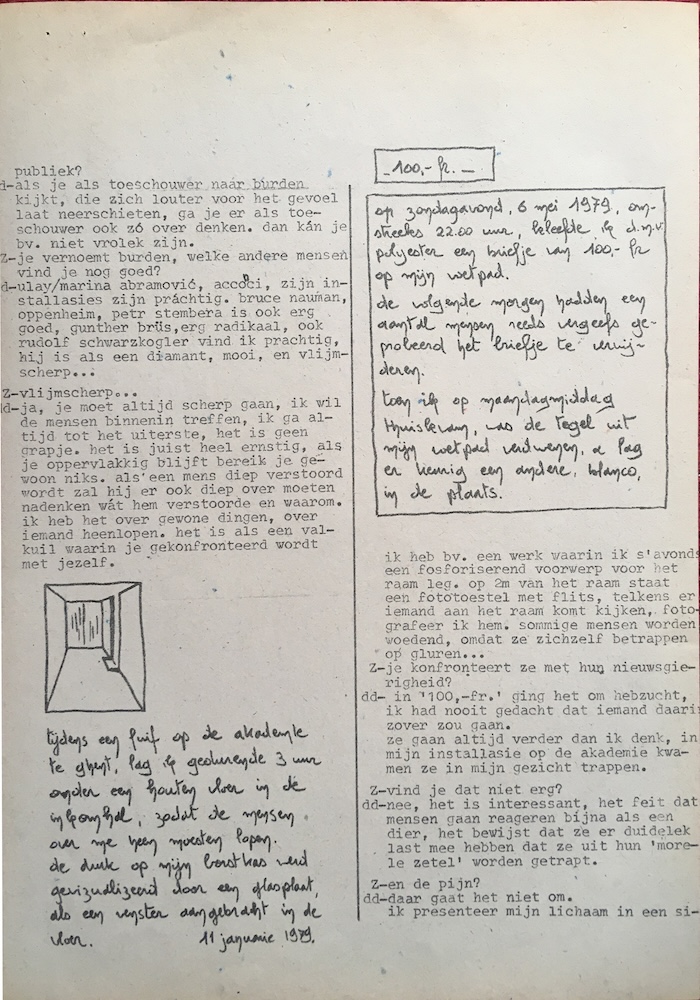 publiek?
d-als je als toeschouwer naar burden
kijkt, die zich louter voor het gevoel
laat neerschieten, ga je er als toe-
schouwer ook zó over denken. dan kán je
bv. niet vrolek zijn.
Z-je vernoemt burden, welke andere mensen
vind je nog goed?
d-ulay/marina abramović, accoci, zijn in-
stallasies zijn práchtig. bruce nauman,
oppenheim, petr stembera is ook erg
goed, gunther brüs,erg radikaal, ook
rudolf schwarzkogler vind ik prachtig,
hij is als een diamant, mooi, en vlijm-
scherp...
Z-vlijmscherp...
dd-ja, je moet altijd scherp gaan, ik wil
de mensen binnenin treffen, ik ga al-
tijd tot het uiterste, het is geen
grapje. het is juist heel ernstig, als
je oppervlakkig blijft bereik je ge-
woon niks. als een mens diep verstoord
wordt zal hij er ook diep over moeten
nadenken wát hem verstoorde en waarom.
ik heb het over gewone dingen, over
iemand heenlopen. het is als een val-
kuil waarin je gekonfronteerd wordt
met jezelf.
tijdens een fuif op de akademie
te ghent, lag ik gedurende 3 uur
onder een houten vloer in de
inkomhal, zodat de mensen
over me heen moesten lopen.
de druk op mijn borstkas werd
gevizualizeerd door een glasplaat,
als een venster aangebracht in de
vloer. 11 januarie 1979.
-100,- fr. -
op zondagavond, 6 mei 1979, om-
streeks 22.00 uur, kleefde ik d.m.v.
polyester een briefje van 100,- fr
op mijn voetpad.
de volgende morgen hadden een
aantal mensen reeds vergeefs ge-
probeerd het briefje te verwij-
deren.
toen ik op maandagmiddag
thuiskwam, was de tegel uit
mijn voetpad verdwenen, & lag
er keurig een andere, blanco,
in de plaats.
ik heb bv. een werk waarin ik s'avonds
een fosforiserend voorwerp voor het
raam leg. op 2m van het raam staat
een fototoestel met flits, telkens er
iemand aan het raam komt kijken, foto-
grafeer ik hem. sommige mensen worden
woedend, omdat ze zichzelf betrappen
op gluren...
Z-je konfronteert ze met hun nieuwsgie-
righeid?
dd- in '100,-fr.' ging het om hebzucht,
ik had nooit gedacht dat iemand daarin
zover zou gaan.
ze gaan altijd verder dan ik denk, in
mijn installasie op de akademie kwa-
men ze in mijn gezicht trappen.
Z-vind je dat niet erg?
dd-nee, het is interessant, het feit dat
mensen gaan reageren bijna als een
dier, het bewijst dat ze er duidelek
last mee hebben dat ze uit hun 'more-
le zetel' worden getrapt.
Z-en de pijn?
dd-daar gaat het niet om.
ik presenteer mijn lichaam in een si-